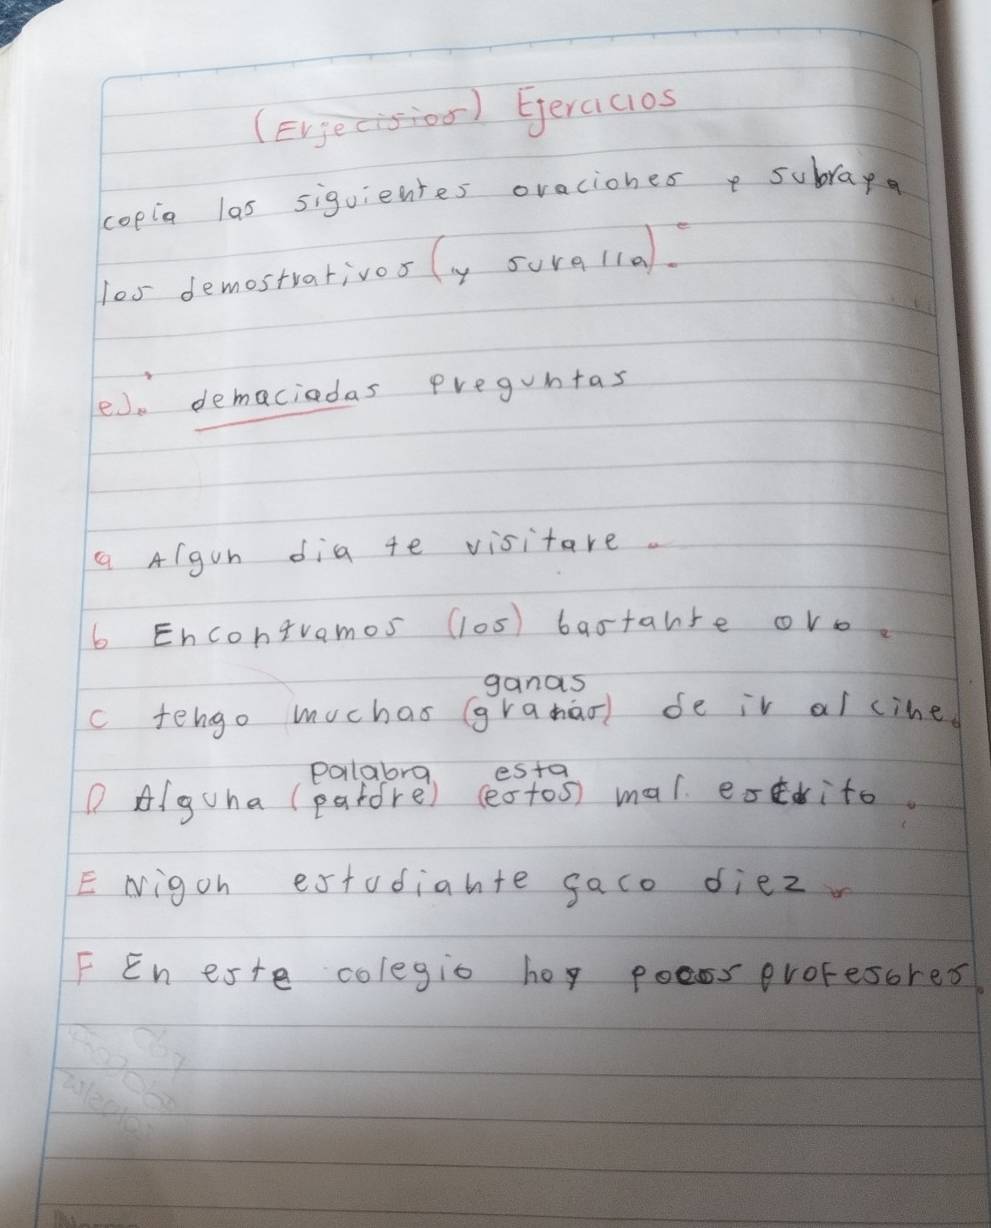 (Erjecisios) Ejercicios
copia las siguientes oraciones y subraya
los demostrativos (y suralla).
ej. demaciadas preguntas
a Algun dia te visitare.
b Encontramos (los) bastante oro.
ganas
c tengo muchas (granar) de ir al cine.
palabra esta
D Alguna (patdre) (estos) mal escrito.
E Nigun estudiante saco diez.
F En este colegio hoy pocos profesores.